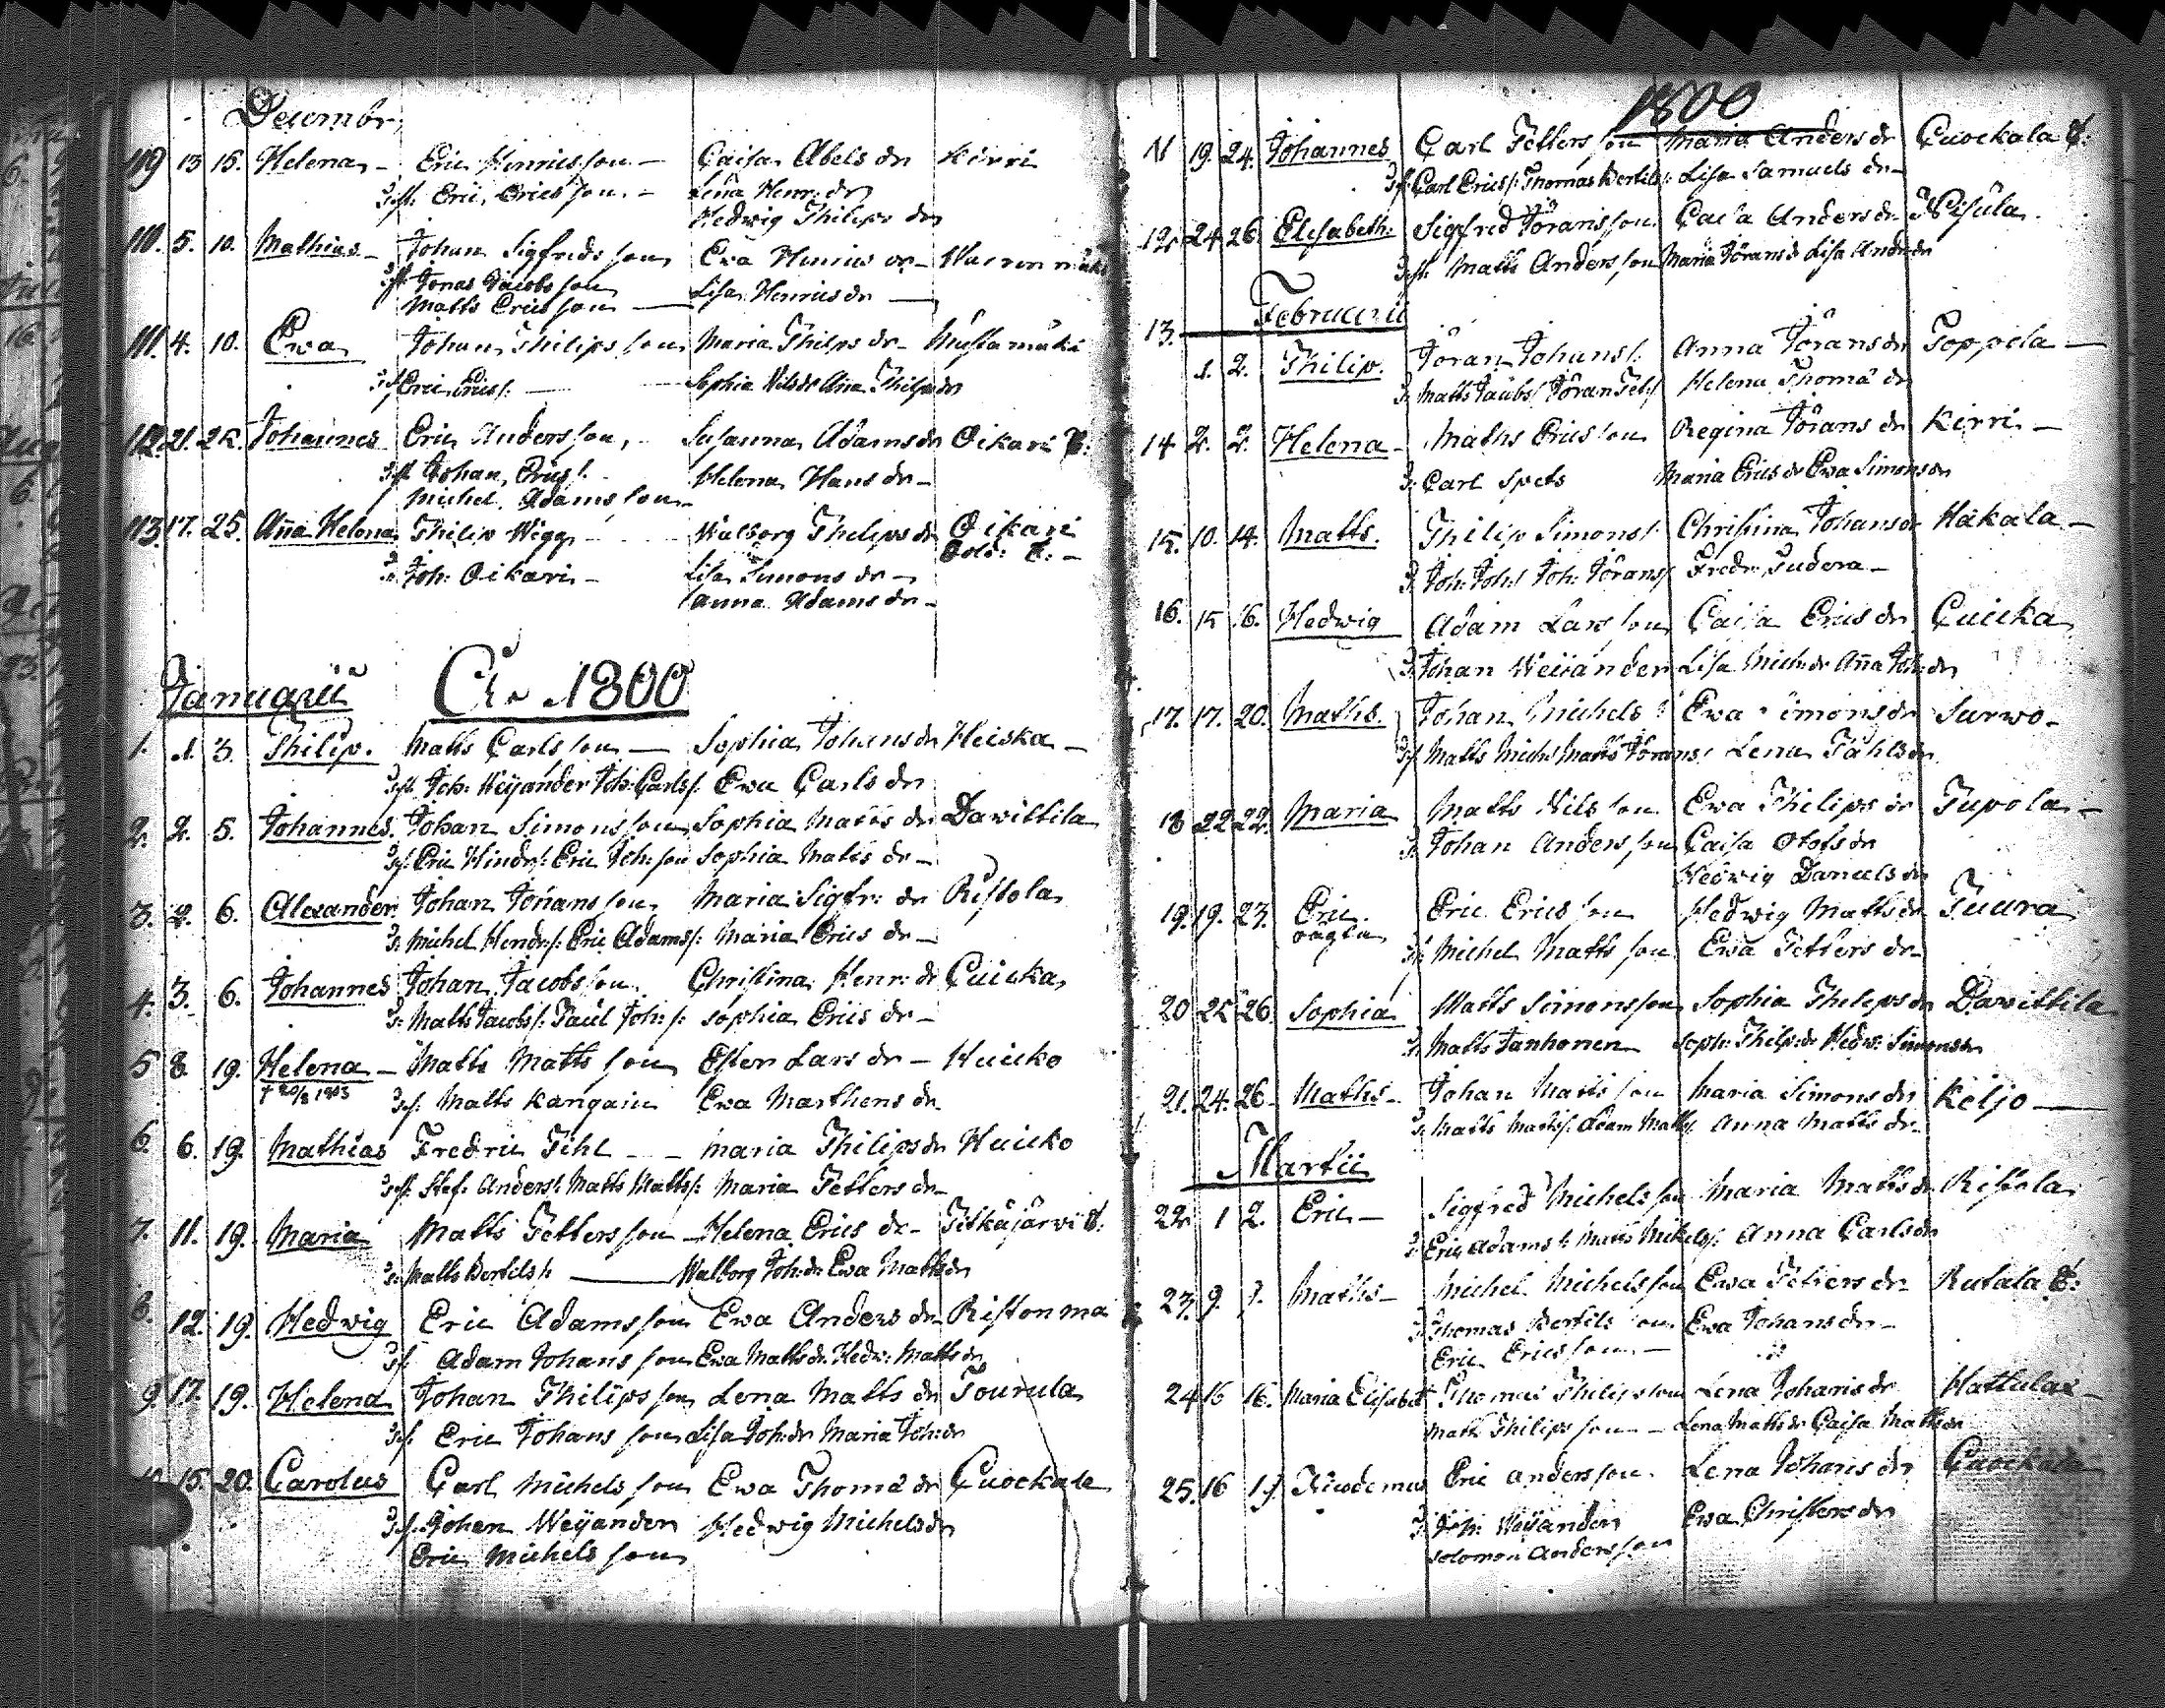 Decembr.
109 13 15. Helena Eric Henricsson Caisa Abels dr Kirri
Eric Ericsson Lena Henr: dr
Hedwig Philips dr
110. 5. 10. Mathias Johan Sigfrids son Eva Henrics dr
Jonas Jacobs son Lisa Henrics dr
Matts Erics son
111. 4. 10. Ewa Johan Philips son Maria Philps dr Mustamäki
Eric Erics s: Sophia Nils dr Aña Philps dr
112. 21. 22. Johannes Eric Anders son Susanna Adams dr Oikari T:
Johan Erics s: Helena Hans dr
Michel Adams son
113. 17. 25. Aña Helena Philip Wigg Walborg Philips dr Oikari
Sold: T:
Joh: Oikari Lisa Simons dr
Anna Adams dr
Januarii
Ao 1800
1. 1. 3. Philip. Matts Carls son Sophia Johans dr Heiska
Joh: Weÿander Joh: Carls s: Ewa Carls dr
2. 2. 5. Johannes. Johan Simons son Sophia Matts dr Davittila
Eric Hindr s: Eric Joh: son Sophia Matts dr
3. 2. 6. Alexander. Johan Jörans son Maria Sigfr: dr Ristola
Michel Hendr s: Eric Adams s: Maria Erics dr
4. 3. 6. Johannes Johan Jacobs son Christina Henr: dr Cuicka
Matts Jacobs s: Paul Joh: s: Sophia Erics dr
5 8. 19. Helena Matts Matts son Ester Lars dr Huicko
Matts Kangain Ewa Marthens dr
6. 6. 19. Mathias Fredric Pihl Maria Philips dr Huicko
Stef: Anders s: Matts Matts s: Maria Petters dr
7. 11. 19. Maria Matts Petters son Helena Erics dr Pitkäjärvi T:
Matts Bertils s: Walborg Joh: dr Ewa Matts dr
8. 12. 19. Hedwig Eric Adams son Ewa Anders dr Ristonma
Adam Johans son Ewa Matts dr Hedw: Matts dr
9. 17. 19. Helena Johan Philips son Lena Matts dr Tourula
Eric Johans son Lisa Joh: dr Maria Joh: dr
15. 20. Carolus Carl Michels son Ewa Thoma dr Cuockala
Johan Weÿander Hedwig Michels dr
Eric Michels son
1800
11 19. 24. Johannes Carl Petters son Maria Anders dr Cuockala T:
Carl Erics s: Thomas Bertils s: Lisa Samuels dr
12. 24. 26. Elisabeth. Sigfred Jörans son Caisa Anders dr
Matts Anders son Maria Jörans dr Lisa Anders dr
Februarii
13.
1. 2. Philip. Jöran Johans s: Anna Jörans dr Poppela
Matts Jacobs s: Jöran Pet: s: Helena Thoma dr
14 2. 2. Helena Maths Erics son Regina Jörans dr Kirri
Carl Spets Maria Erics dr Ewa Simons dr
15. 10. 14. Matts. Philip Simons s: Christina Johans dr Hakala
Joh: Joh: s: Joh: Jörans s: Fredr: Pudera
16. 15 16. Hedwig Adam Lars son Caisa Erics dr Cuicka
Johan Weiiander Lisa Mich: dr Aña Joh: dr
17. 17. 20. Maths. Johan Michels s: Ewa Simons dr Surwo
Matts Michs: Matts Jörans s: Lena Påhls dr
18 22 22. Maria Matts Nils son Ewa Philips dr Pupola
Johan Anders son Caisa Olofs dr
Hedwig Daniels dr
19. 19. 23. Eric. Eric Erics son Hedwig Matts dr Tuura
oägta Michel Matts son Ewa Petters dr
20 25 26. Sophia Matts Simons son Sophia Philips dr Davittila
Matts Tanhonen Soph: Philps dr Hedw: Simons dr
21. 24. 26. Maths Johan Matts son Maria Simons dr Keljo
Matts Matts s: Adam Matts s: Anna Matts dr
Martii
22. 1 2. Eric Sigfred Michels son Maria Matts dr Ristola
Eric Adams s: Matts Mikels s: Anna Carls dr
23. 9. 9. Maths Michel Michels son Ewa Petters dr Rutala T:
Thomas Bertils son Ewa Johans dr
Eric Erics son
24 15 16. Maria Elisabet Thomas Philips son Lena Johans dr
Math Philips son Lena Matts dr Caisa Matts dr
25. 16 Nicodemus Eric Anders son Lena Johans dr Cuockala
Joh: Weÿander Ewa Christers dr
Solomon Anders son